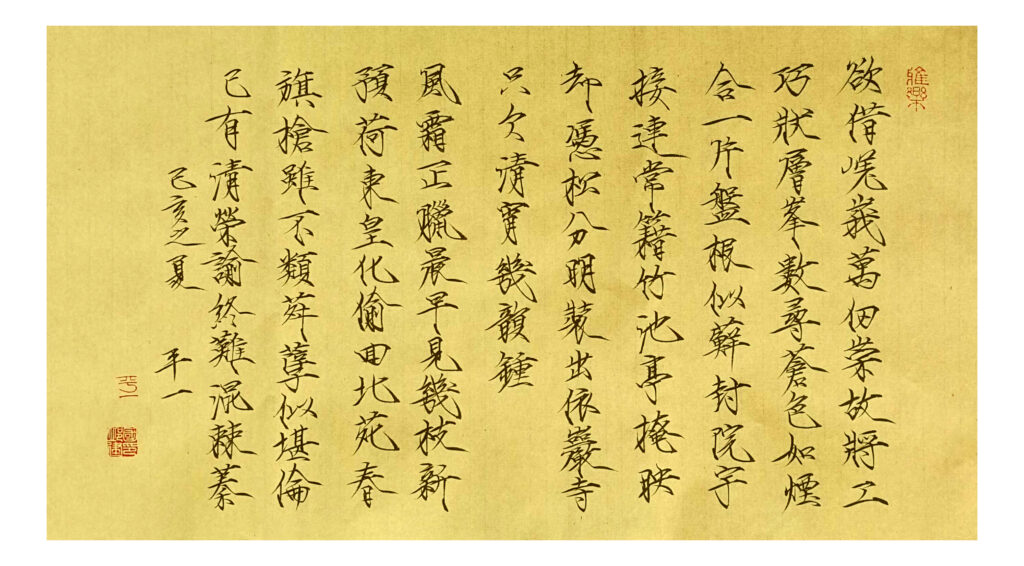 雅樂
欲借嵬峩萬仞崇故將工
巧狀層峯數尋蒼色如煙
合一片盤根似蘚封院宇
接連常籍竹池亭掩映
却憑松分明裝出依巖寺
只欠清宵幾韻鍾
風霜正臘晨早見幾枝新
預荷東皇化偷囬北苑春
旗槍雖不類荈孽似堪倫
已有清榮諭終難混棘蓁
己亥之夏 平一
平一